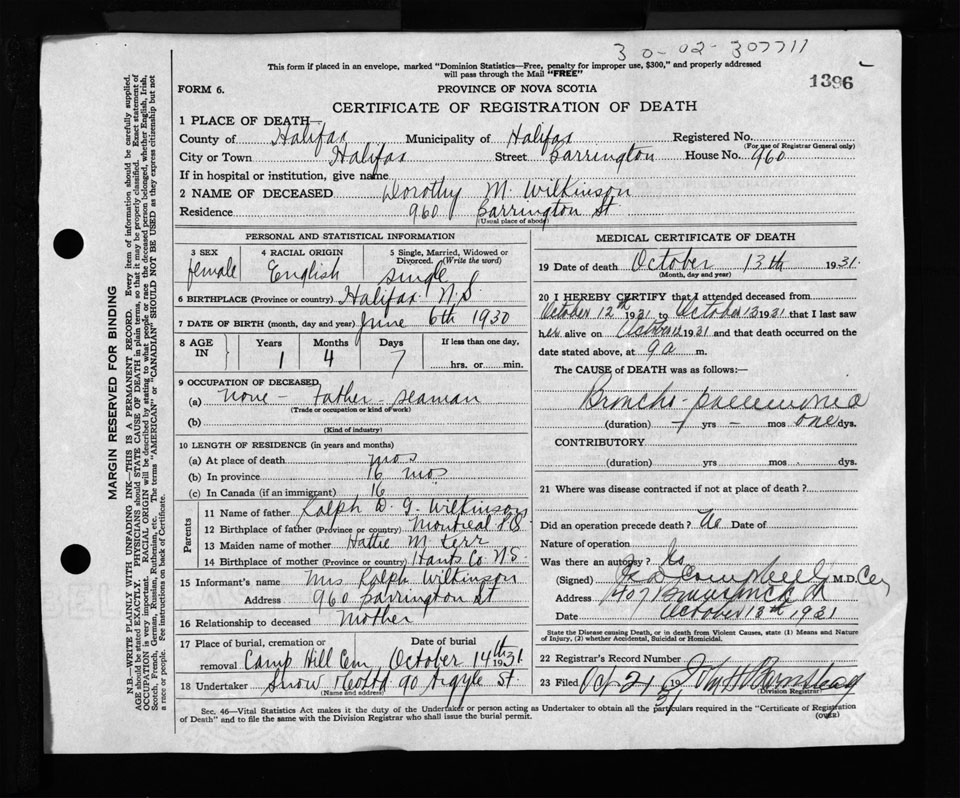 30-02-307711
This form if placed in an envelope, marked "Dominion Statistics—Free, penalty for improper use, $300," and properly addressed
will pass through the Mail "FREE"
1396
FORM 6.
PROVINCE OF NOVA SCOTIA
CERTIFICATE OF REGISTRATION OF DEATH
1 PLACE OF DEATH—
County of Halifax Municipality of Halifax Registered No.
(For use of Registrar General only)
City or Town Halifax Street Barrington House No. 960
If in hospital or institution, give name
2 NAME OF DECEASED Dorothy M. Wilkinson
Residence 960 Barrington St
(Usual place of abode)
PERSONAL AND STATISTICAL INFORMATION
3 SEX female
4 RACIAL ORIGIN English
5 Single, Married, Widowed or
Divorced. (Write the word)
single
6 BIRTHPLACE (Province or country) Halifax N.S.
7 DATE OF BIRTH (month, day and year) June 6th 1930
8 AGE IN
Years Months Days If less than one day,
1 4 7 hrs. or min.
9 OCCUPATION OF DECEASED
(a) None - Father - seaman
(Trade or occupation or kind of work)
(b)
(Kind of industry)
10 LENGTH OF RESIDENCE (in years and months)
(a) At place of death mos
(b) In province 16 mos
(c) In Canada (if an immigrant) 16
Parents
11 Name of father Ralph D. G. Wilkinson
12 Birthplace of father (Province or country) Montreal P.Q.
13 Maiden name of mother Hattie M. Kerr
14 Birthplace of mother (Province or country) Hants Co N.S.
15 Informant's name Mrs Ralph Wilkinson
Address 960 Barrington St
16 Relationship to deceased Mother
17 Place of burial, cremation or removal Camp Hill Cem
Date of burial October 14th 1931.
18 Undertaker Snow & Co Ltd 90 Argyle St.
(Name and address)
MEDICAL CERTIFICATE OF DEATH
19 Date of death October 13th 1931.
(Month, day and year)
20 I HEREBY CERTIFY that I attended deceased from
October 12th 1931 to October 13 1931 that I last saw
her alive on 1931 and that death occurred on the
date stated above, at 9 a m.
The CAUSE of DEATH was as follows:—
Broncho-pneumonia
(duration) - yrs - mos one dys.
CONTRIBUTORY
(duration) yrs. mos. dys.
21 Where was disease contracted if not at place of death?
Did an operation precede death? No Date of
Nature of operation
Was there an autopsy? No
(Signed) Campbell M.D.
Address 407 Brunswick St
Date October 13th 1931
State the Disease causing Death, or in death from Violent Causes, state (1) Means and Nature
of Injury, (2) whether Accidental, Suicidal or Homicidal.
22 Registrar's Record Number
23 Filed Oct 21 19 31
(Division Registrar)
Sec. 46—Vital Statistics Act makes it the duty of the Undertaker or person acting as Undertaker to obtain all the particulars required in the "Certificate of Registration
of Death" and to file the same with the Division Registrar who shall issue the burial permit.
(OVER)
MARGIN RESERVED FOR BINDING
N.B.—WRITE PLAINLY WITH UNFADING INK—THIS IS A PERMANENT RECORD. Every item of information should be carefully supplied.
AGE should be stated EXACTLY. PHYSICIANS should STATE CAUSE OF DEATH in plain terms, so that it may be properly classified. Exact statement of
OCCUPATION is very important. RACIAL ORIGIN will be described by stating to what people or race the deceased person belonged, whether English, Irish,
Scotch, French, German, Russian, Ruthenian, etc. The terms "AMERICAN" or "CANADIAN" SHOULD NOT BE USED as they express citizenship but not
a race or people. Fee instructions on back of Certificate.